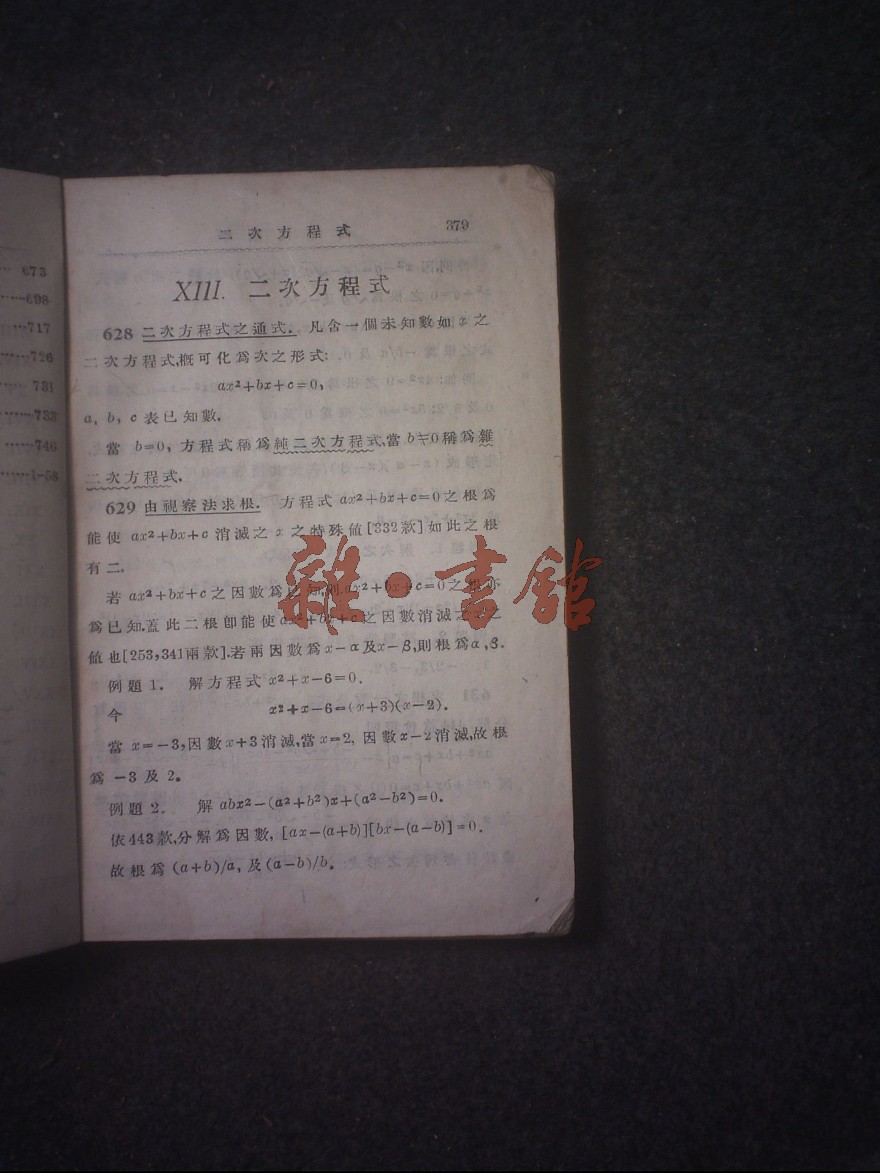 673
698
717
726
731
733
746
1-58
二次方程式 379
XIII. 二次方程式
628 二次方程式之通式. 凡含一個未知數如 x 之
二次方程式,概可化爲次之形式:
ax²+bx+c=0,
a, b, c 表已知數.
當 b=0, 方程式稱爲純二次方程式,當 b≠0 稱爲雜
二次方程式.
629 由視察法求根. 方程式 ax²+bx+c=0 之根爲
能使 ax²+bx+c 消滅之 x 之特殊値[332款]如此之根
有二.
若 ax²+bx+c 之因數爲已知,則 ax²+bx+c=0 之根亦
爲已知.蓋此二根卽能使 ax²+bx+c 之因數消滅之 之
値也[253,341兩款].若兩因數爲 x-α 及 x-β,則根爲 α,β.
例題1. 解方程式 x²+x-6=0.
今 x²+x-6=(x+3)(x-2).
當 x=-3,因數 x+3 消滅,當 x=2, 因數 x-2 消滅,故根
爲 -3 及 2.
例題2. 解 abx²-(a²+b²)x+(a²-b²)=0.
依443款,分解爲因數, [ax-(a+b)][bx-(a-b)]=0.
故根爲 (a+b)/a, 及 (a-b)/b.
雜·書館